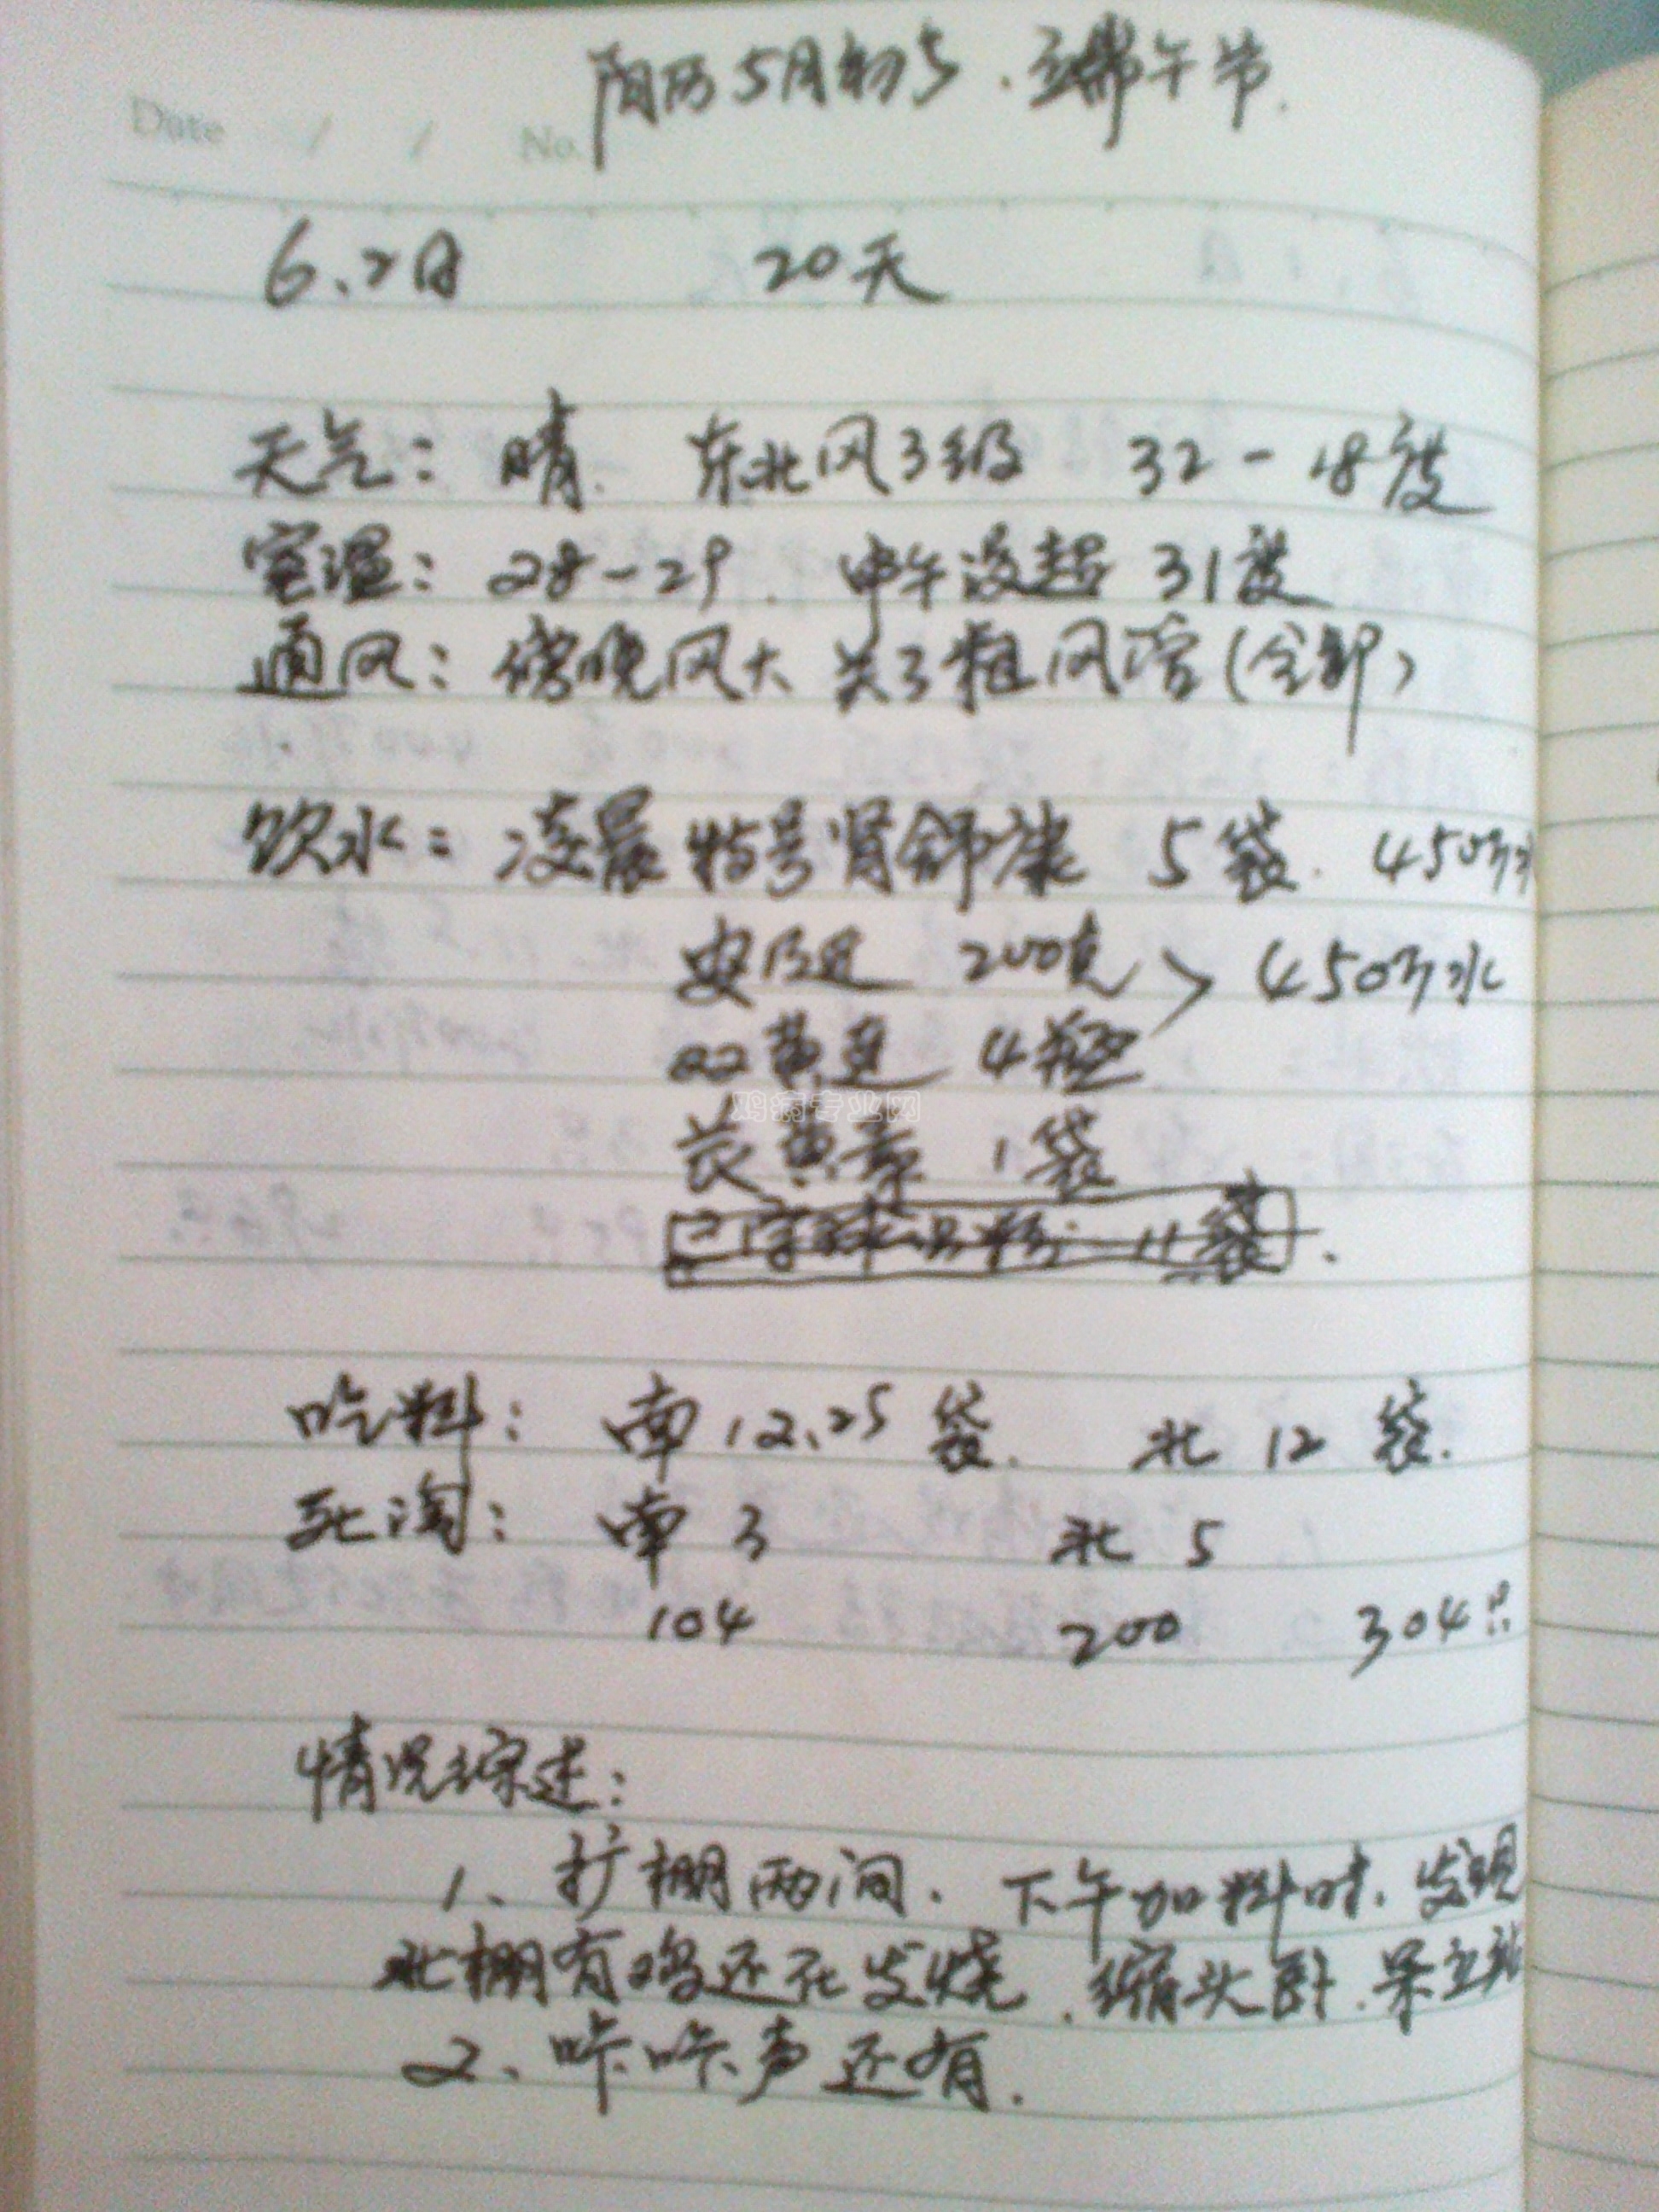 阳历5月初5.端午节.
Date / / No.
6、2日 20天
天气：晴. 东北风3级 32-18度
室温：28-29. 中午没超31度
通风：傍晚风大关了粗风筒(全部)
饮水：凌晨 特号肾舒康 5袋. 450斤水
安乃近 200克 > 450斤水
双黄连 4瓶
鸡病专业网
芪黄素 1袋
11袋.
吃料：南12、25袋. 北12袋.
死淘：南3 北5
104 200 304只
情况综述：
1、扩棚两间. 下午加料时. 发现
北棚有鸡还在发烧.缩头卧.呆立站
2、咔咔声还有.